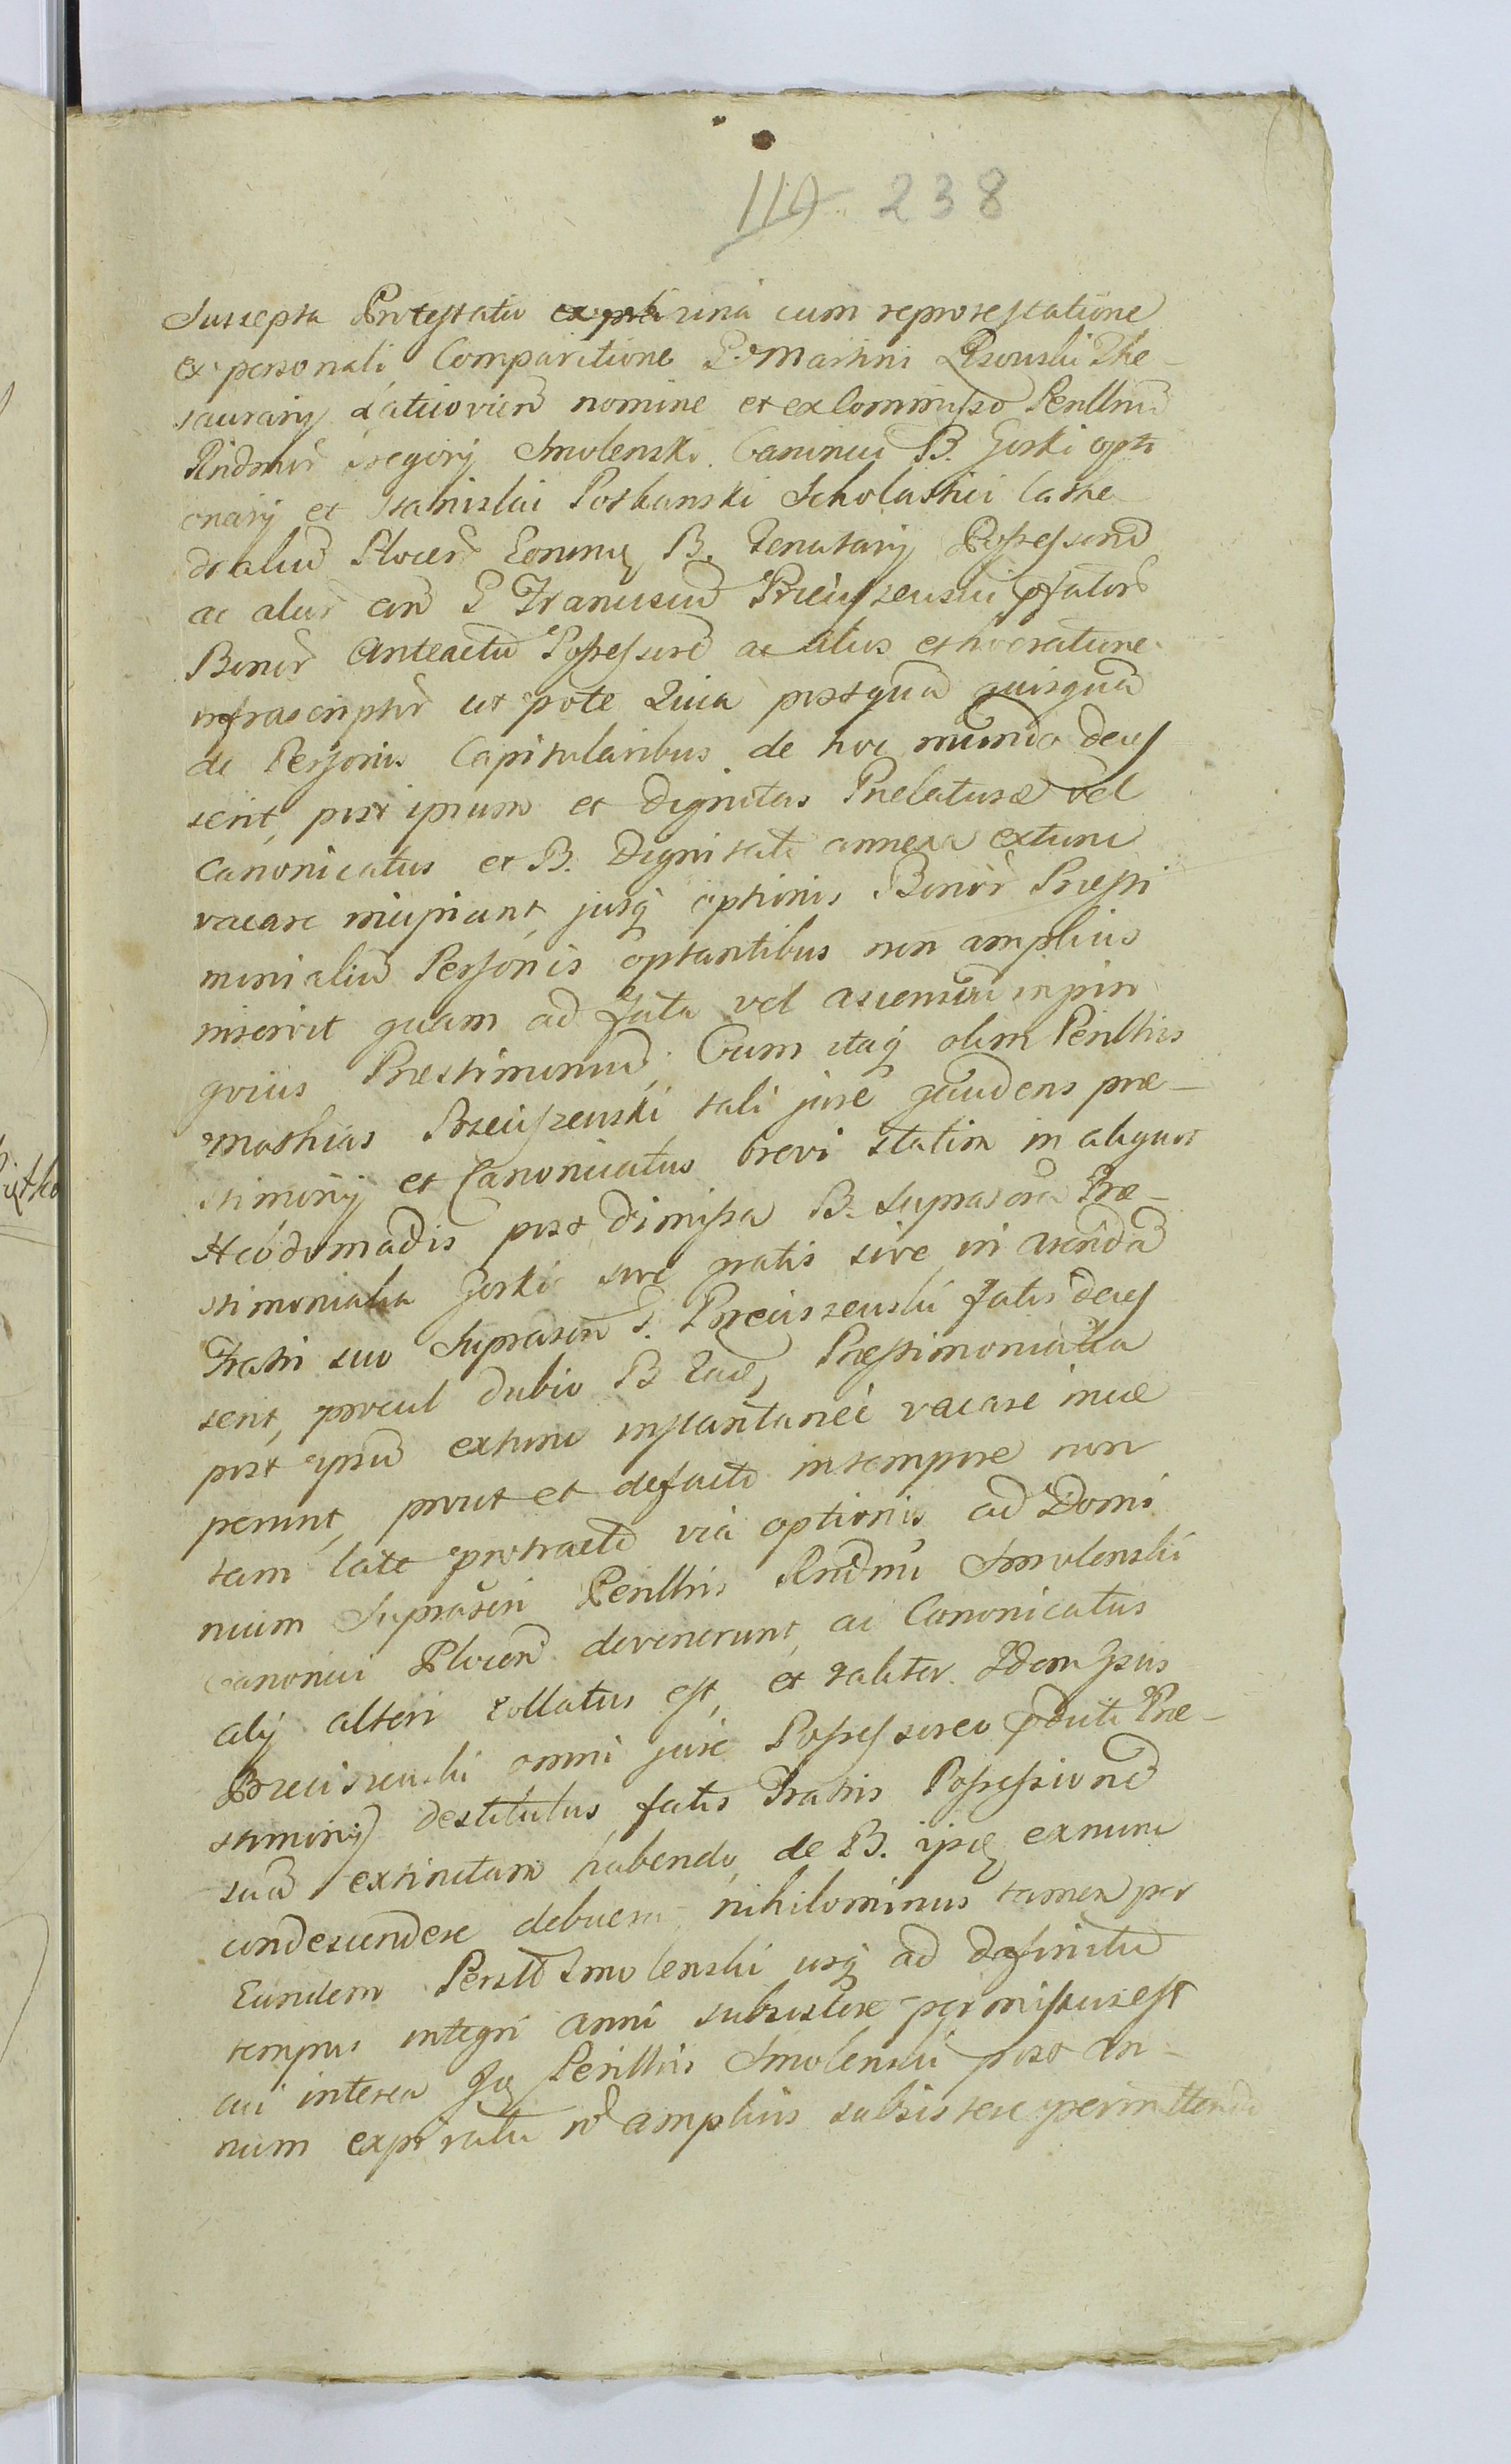 119 238
Suscepta Protestatio unà cum reprotestatione
ex personali Comparitione G. Martini Lisowski The-
saurarij nomine et ex Commisso Perillrium
Rndmor Gregorij Smolenski Canonici B. Gorski opti
onarij et Stanislai Poskanski Scholastici Cathe
dralium Plocen Eorumq B. Tenutarij Possessorum
ac alior con G Franciscum Brzeciszewski pfator
Bonor Anteactum Possessorem ac alios et hoc ratione
infrascriptor ut pote Quia postquam quisquam
de Personis Capitularibus de hoc mundo deces
serit, post ipsum et Dignitas Prelaturæ vel
Canonicatus et B. Dignitati annexa extunc
vacare incipiant, jusq optionis Bonor Præsti
monialium Personis optantibus non amplius
inservit quam ad fata vel ascensum in pin
guius Præstimonium, Cum itaq olim Perillris
Mathias Brzeciszewski tali jure gaudens præ-
stimonij et Canonicatus brevi statim in aliquot
Hebdomadis post dimissa B. suprascra Præ-
stimonialia Gorski sive gratis sive in arendam
Fratri suo Suprascri G. Brzeciszewski fatis deces
serit, procul dubio B Eadem Præstimonialia
post ipsum extunc instantanee vacare incæ
perunt, prout et defacto in tempore non
tam late protracto via optionis ad Domi
nium Suprascri Perillris Rndmi Smolenski
Canonici Plocen devenerunt, ac Canonicatus
alij alteri collatus est, et taliter Idem Gsus
Brzeciszewski omni jure Possessoreo pducti Præ-
stimonij destitutus fatis Fratris Possessionem
suam extinctam habendo, de B. ipsq exnunc
condescendere debuerit, nihilominus tamen per
Eundem Perill Smolenski usq ad definitum
tempus integri anni subsistere permissus est
cui interea Idq Perillris Smolenski post an-
num expiratum no amplius subsistere permittendo